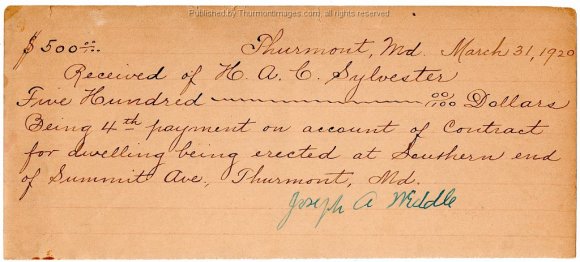 Published by Thurmontimages.com, all rights reserved
$500 00/100 Thurmont, Md. March 31, 1920
Received of H. A. C. Sylvester
Five Hundred 00/100 Dollars
Being 4th payment on account of Contract
for dwelling being erected at Southern end
of Summit Ave., Thurmont, Md.
Joseph A Weddle